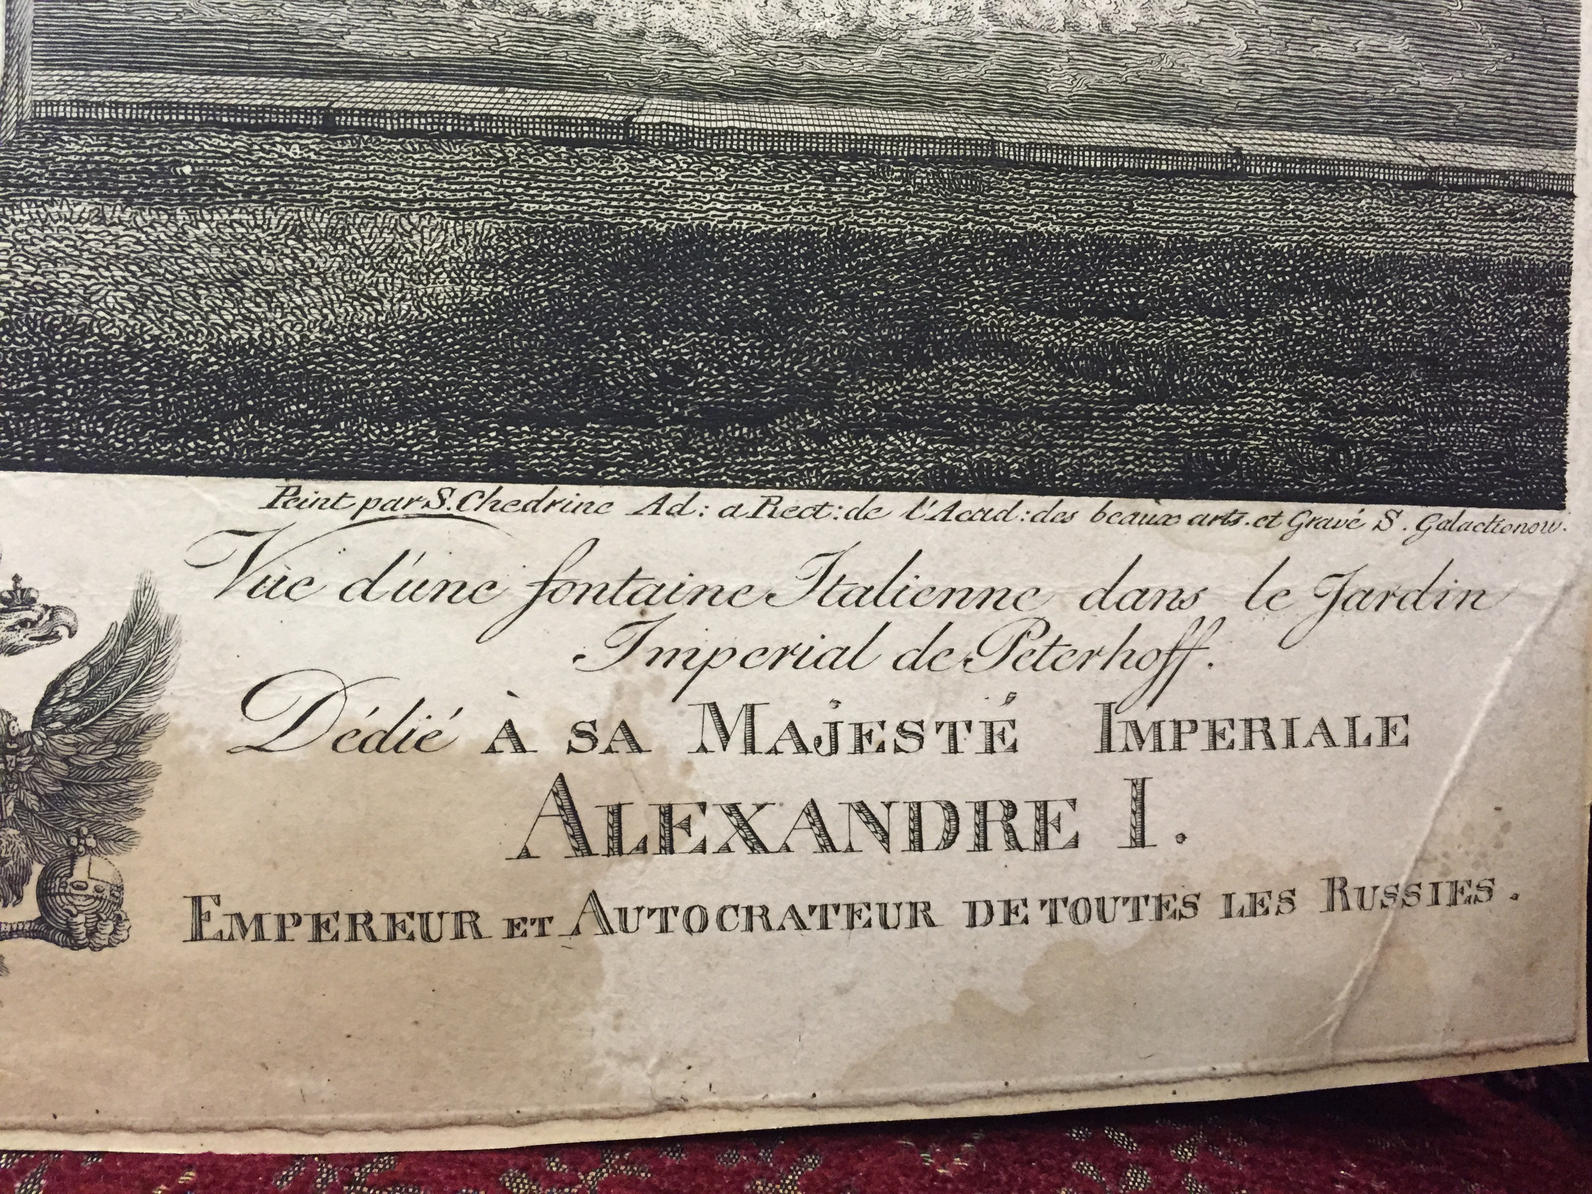 Peint par S. Chedrine Ad: a Rect: de l'Acad: des beaux arts. et Gravé S. Galactionow.
Vüe d'une fontaine Italienne dans le Jardin
Imperial de Peterhoff.
Dédié À SA MAJESTÉ IMPERIALE
ALEXANDRE I.
EMPEREUR ET AUTOCRATEUR DE TOUTES LES RUSSIES.